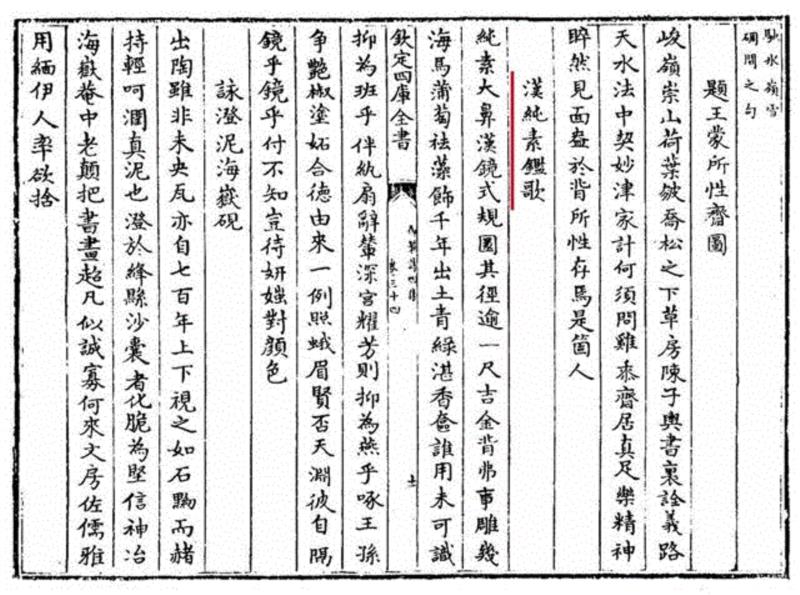 嶺雪
之句
題王蒙所性齋圖
峻嶺崇山荷葉皴喬松之下草房陳子輿書裏詮義路
天水法中契妙津家計何須問雞黍齊居真足樂精神
睟然見面盎於背所性存焉是箇人
漢純素鑑歌
純素大鼻漢鏡式規圜其徑逾一尺吉金背弗事雕幾
海馬蒲萄袪藻飾千年出土青綠湛香奩誰用未可識
欽定四庫全書
卷三十四
抑為班乎伴紈扇辭輦深宮耀芳則抑為燕乎啄王孫
争艷椒塗妬合德由來一例照蛾眉賢否天淵彼自隔
鏡乎鏡乎付不知豈待妍媸對顏色
詠澄泥海嶽硯
出陶雖非未央瓦亦自七百年上下視之如石黝而赭
持輕呵潤真泥也澄於絳縣沙囊者化脆為堅信神冶
海嶽菴中老顛把書畫超凡似誠寡何來文房佐儒雅
用緬伊人率欲捨